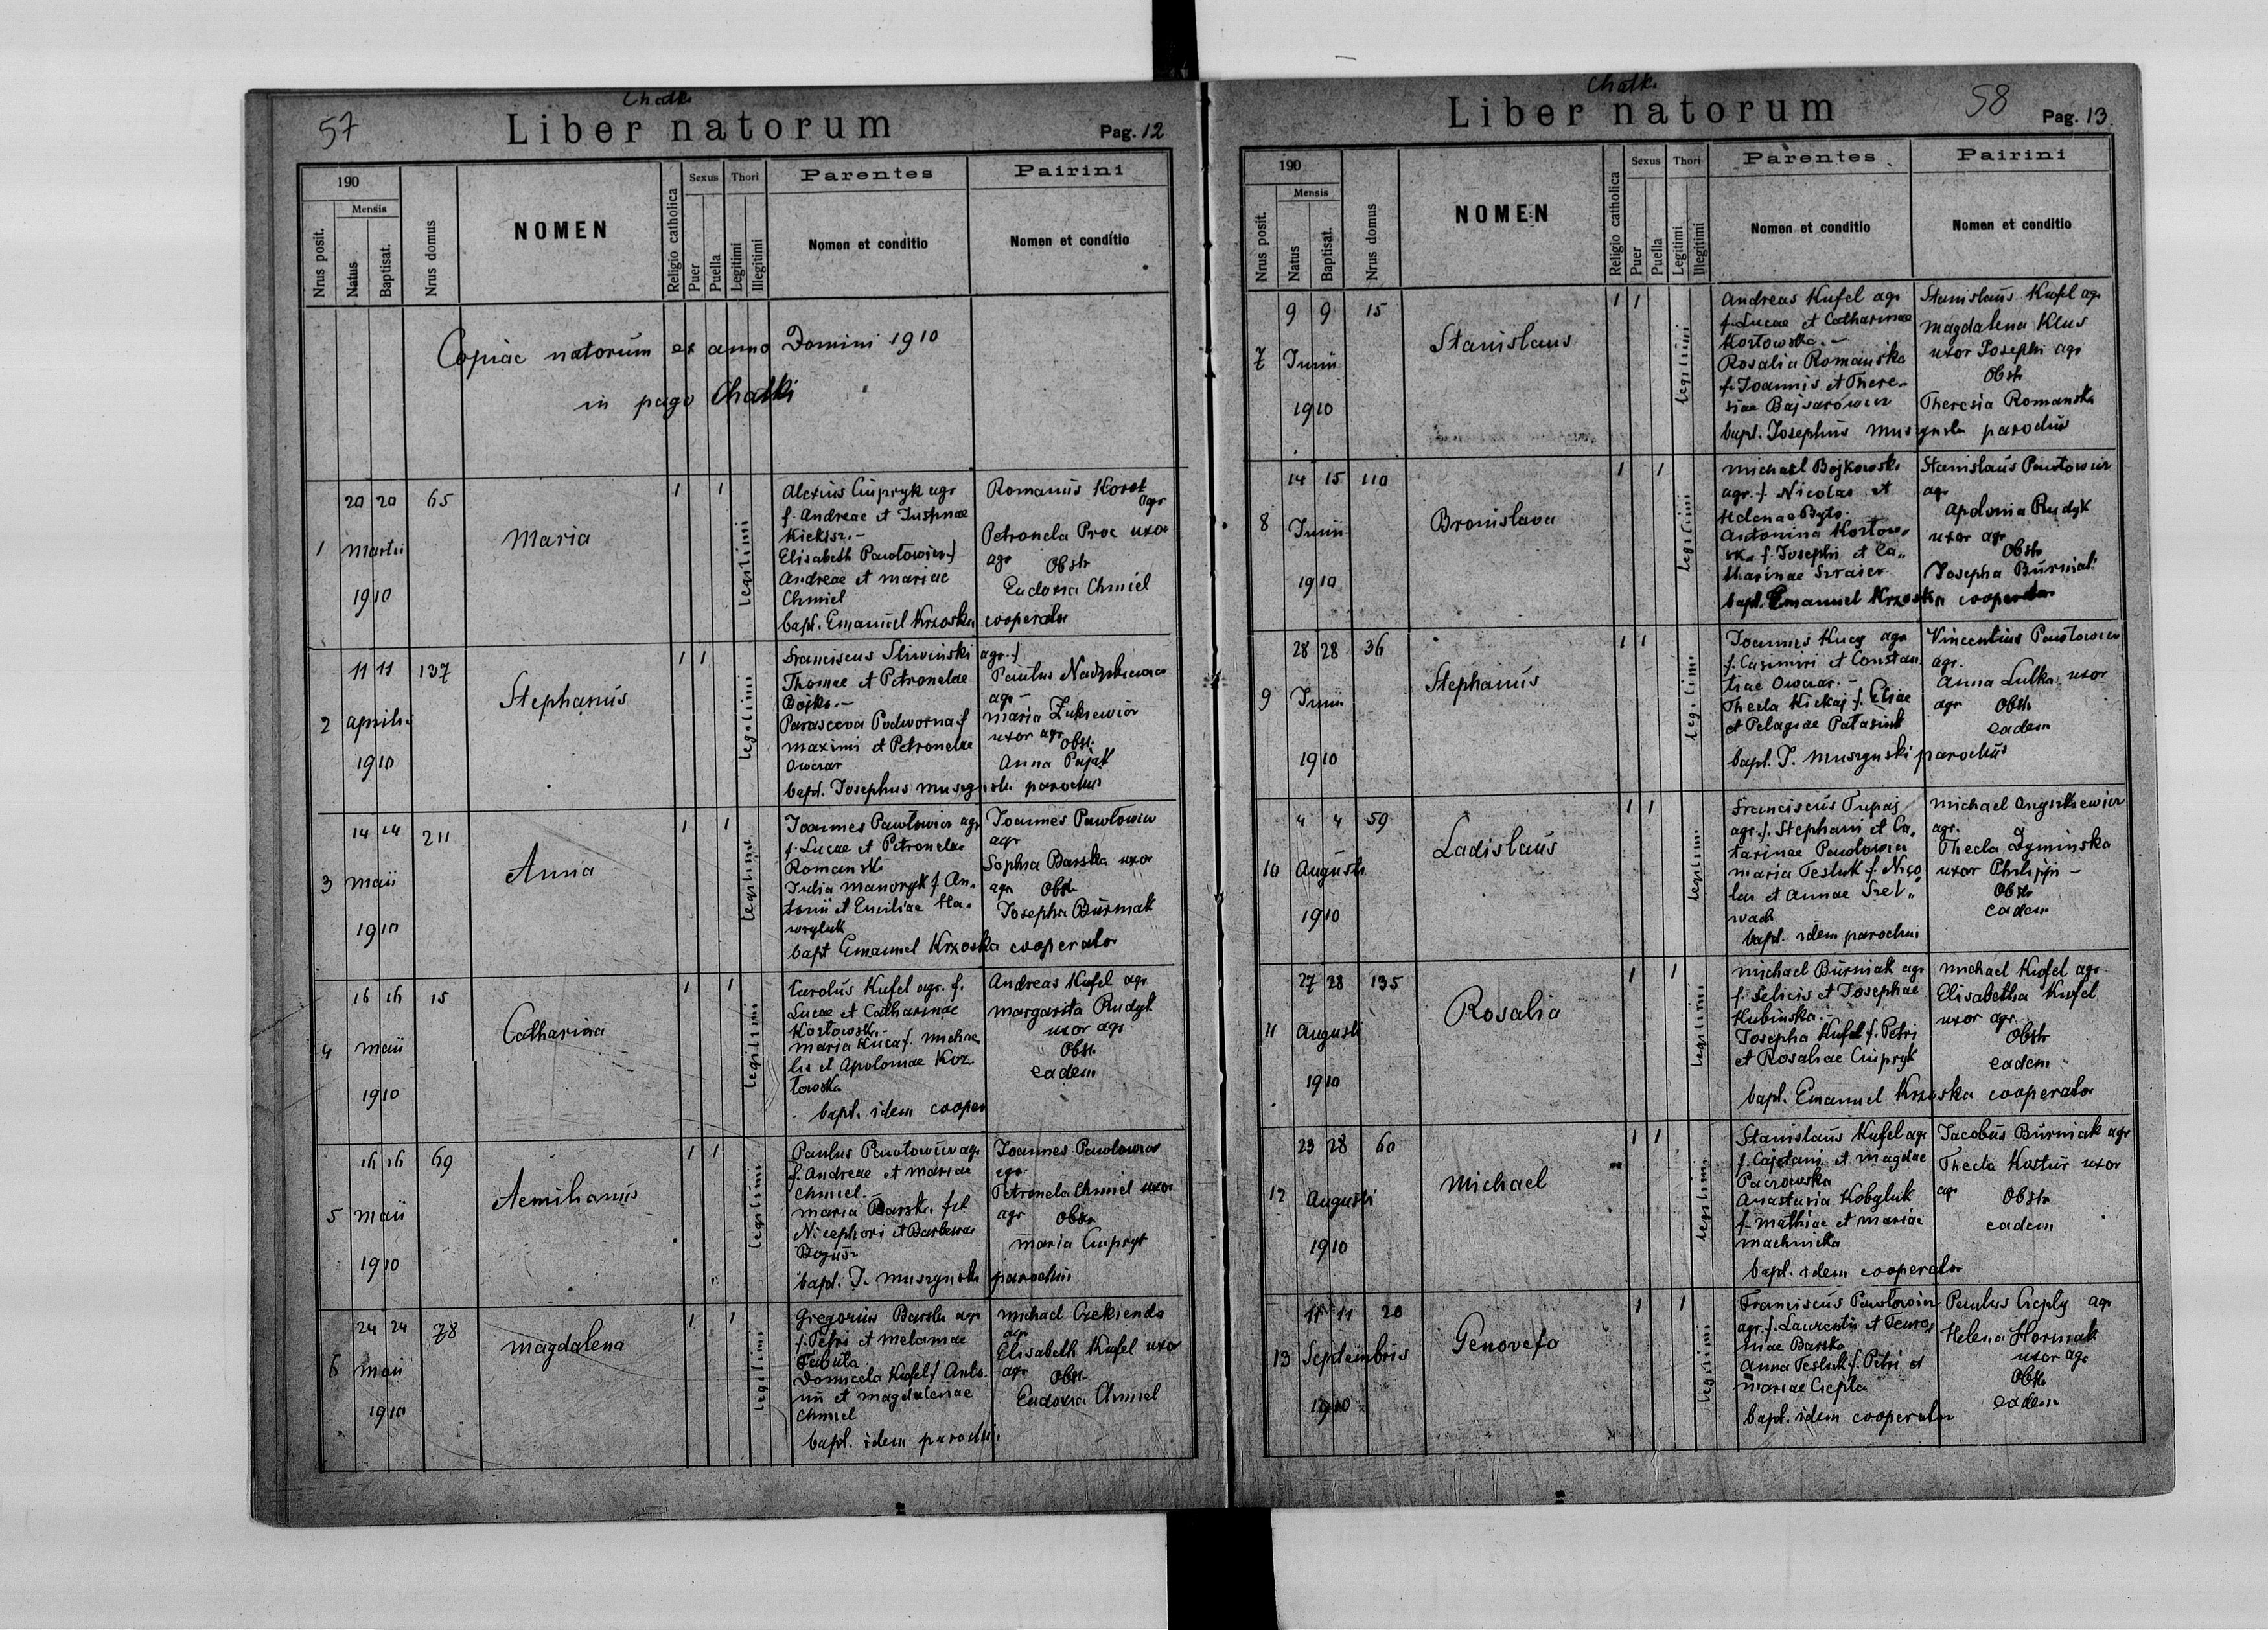 57
Chatki
Liber natorum
Pag. 12
190
Nrus posit.
Mensis
Natus
Baptisat.
Nrus domus
NOMEN
Religio catholica
Sexus
Puer
Puella
Thori
Legitimi
Illegitimi
Parentes
Nomen et conditio
Pairini
Nomen et conditio
Copiae natorum ex anno Domini 1910
in pago Chatki
1
20 20 65
Martii
1910
Maria
1 1
legitimi
Alexius Ciupryk agr
f. Andreae et Justinae
Kieksz.-
Elisabeth Pawłowicz f
Andreae et Mariae
Chmiel
bapt. Emanuel Krzoska cooperator
Romanus Korol
agr
Petronela Proc uxor
agr Obstr
Eudoxia Chmiel
2
11 11 137
Aprilis
1910
Stephanus
1 1
legitimi
Franciscus Sliwinski agr. f
Thomae et Petronelae
Bojko.-
Parasceva Podworna f
Maximi et Petronelae
Owczar
bapt. Josephus Muszynski parochus
Paulus
agr -
Maria Żukiewicz
uxor agr
Obstr.
Anna Pająk
3
14 14 211
Maii
1910
Anna
1 1
legitimi
Joannes Pawłowicz agr
f. Lucae et Petronelae
Romanski
Julia Manoryk f An-
tonii et Emiliae Ha-
wryluk
bapt Emanuel Krzoska cooperator
Joannes Pawłowicz
agr
Sophia Barska uxor
agr Obstr
Josepha Burniak
4
16 16 15
Maii
1910
Catharina
1 1
legitimi
Carolus Kufel agr. f.
Lucae et Catharinae
Kozłowsk.-
Maria Kuca f. Michae
lis et Apoloniae Koz-
łowska
bapt. idem cooper
Andreas Kufel agr
Margarita Rudyk
uxor agr
Obstr
eadem
5
16 16 69
Maii
1910
Aemilianus
1 1
legitimi
Paulus Pawłowicz agr
f. Andreae et Mariae
Chmiel.-
Maria Barsk. fil
Nicephori et Barbarae
Bogusz
bapt. J. Muszynski parochus
Joannes Pawłowicz
agr
Petronela Chmiel uxor
agr Obstr
Maria Ciupryk
6
24 24 78
Maii
1910
Magdalena
1 1
legitimi
Gregorius Barski agr
f. Petri et Melaniae
Tabuła
Domicela Kufel f Anto-
nii et Magdalenae
Chmiel
bapt. idem parochus.
Michael Czekienda
agr
Elisabeth Kufel uxor
agr Obstr
Eudoxia Chmiel
Chatki
Liber natorum
58
Pag. 13
190
Nrus posit.
Mensis
Natus
Baptisat.
Nrus domus
NOMEN
Religio catholica
Sexus
Puer
Puella
Thori
Legitimi
Illegitimi
Parentes
Nomen et conditio
Pairini
Nomen et conditio
7
9 9 15
Junii
1910
Stanislaus
1 1
legitimi
Andreas Kufel agr
f. Lucae et Catharinae
Kozłowska.-
Rosalia Romańska
f. Joannis et There-
siae Bajsarowicz
bapt. Josephus Muszynski parochus
Stanislaus Kufel agr
Magdalena Klus
uxor Josephi agr
Obstr
Theresia Romanska
8
14 15 110
Junii
1910
Bronislava
1 1
legitimi
Michael Bojkowski
agr. f. Nicolai et
Helenae Było.
Antonina Kozłow-
sk. f. Josephi et Ca-
tharinae Szraier
bapt. Emanuel Krzoska cooperator
Stanislaus Pawłowicz
agr
Apolonia Rudyk
uxor agr
Obstr
Josepha Burniak
9
28 28 36
Junii
1910
Stephanus
1 1
legitimi
Joannes Kucy agr
f. Casimiri et Constan
tiae Owczar.-
Thecla Kickaj f. Eliae
et Pelagiae Patasiuk
bapt. J. Muszynski parochus
Vincentius Pawłowicz
agr.
Anna Lulka uxor
agr Obstr
eadem
10
4 4 59
Augusti
1910
Ladislaus
1 1
legitimi
Franciscus Tupaj
agr. f. Stephani et Ca-
tarinae Pawłowicz
Maria Tesluk f. Nico
lai et Annae Szel-
wach
bapt. idem parochus
Michael Onyszkewicz
agr.
Thecla Dyminska
uxor Philippi -
Obstr
eadem
11
27 28 135
Augusti
1910
Rosalia
1 1
legitimi
Michael Burniak agr
f. Felicis et Josephae
Kubinska.-
Josepha Kufel f. Petri
et Rosaliae Ciupryk
bapt. Emanuel Krzoska cooperator
Michael Kufel agr
Elisabetha Kufel
uxor agr.
Obstr
eadem
12
23 28 60
Augusti
1910
Michael
1 1
legitimi
Stanislaus Kufel agr
f. Cajetani et Magdae
Paczowska
Anastasia Kobyluk
f. Mathiae et Mariae
Machnicka
bapt. idem cooperator
Jacobus Burniak agr
Thecla Kostur uxor
agr Obstr
eadem
13
11 11 20
Septembris
1910
Genovefa
1 1
legitimi
Franciscus Pawłowicz
agr. f. Laurentii et Fewro,
niae Barska
Anna Tesluk f. Petri et
Mariae Ciepla
bapt. idem cooperator
Paulus Cieply agr
Helena Horniak
uxor agr
Obstr
eadem